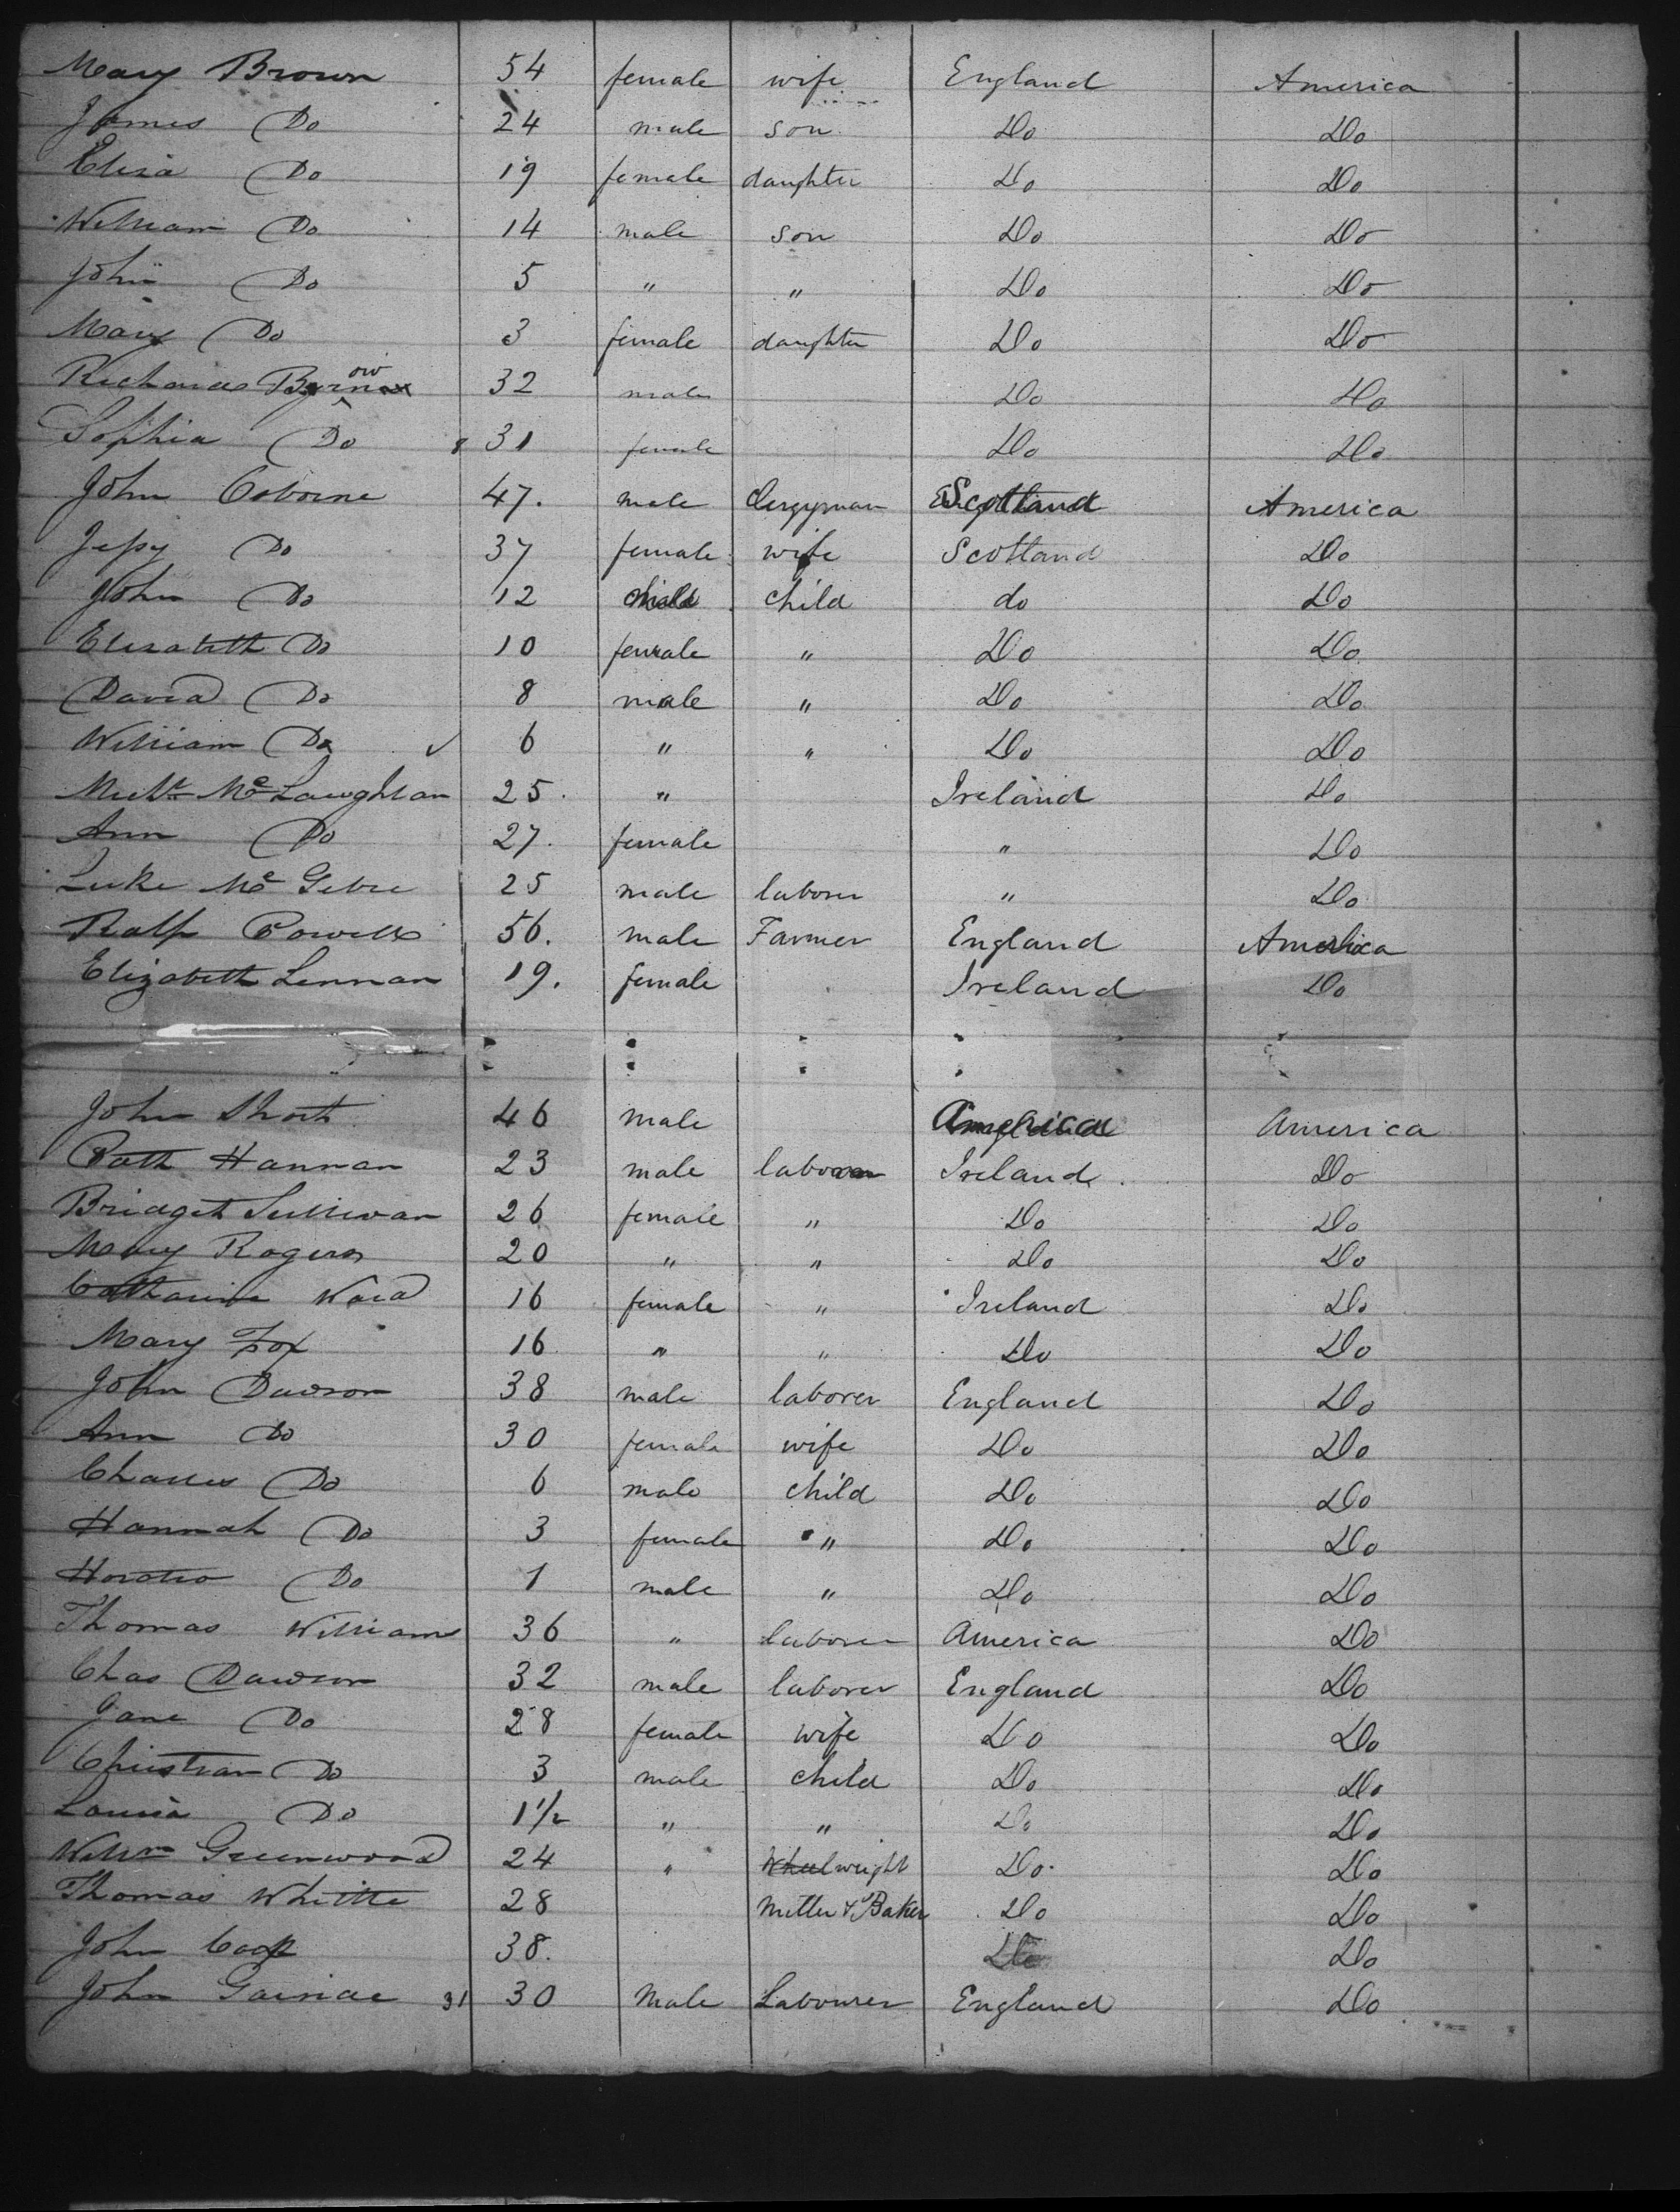 Mary Brown 54 female wife England America
James Do 24 male son Do Do
Eliza Do 19 female daughter Do Do
William Do 14 male son Do Do
John Do 5 " " Do Do
Mary Do 3 female daughter Do Do
Richard Brown 32 male Do Do
Sophia Do 8 31 female Do Do
John Osborne 47. male Clergyman Scotland America
Jessy Do 37 female wife Scotland Do
John Do 12 child do Do
Elizabeth Do 10 female " Do Do
David Do 8 male " Do Do
William Do ✓ 6 " " Do Do
McLaughlan 25. " Ireland Do
Ann Do 27. female " Do
Luke Mc 25 male laborer " Do
Ralf Powell 56. male Farmer England America
Elizabeth Lennan 19. female Ireland Do
John Short 46 male America America
Patk Hannan 23 male laborer Ireland Do
Bridget Sullivan 26 female " Do Do
Mary Rogers 20 " " Do Do
Catharine Ward 16 female " Ireland Do
Mary Fox 16 " " Do Do
John Dawson 38 male laborer England Do
Ann Do 30 female wife Do Do
Charles Do 6 male child Do Do
Hannah Do 3 female " Do Do
Horatio Do 1 male " Do Do
Thomas Williams 36 " laborer America Do
Chas Dawson 32 male laborer England Do
Jane Do 28 female wife Do Do
Christian Do 3 male child Do Do
Louisa Do 1 1/2 " " Do Do
Willm Greenwood 24 " Wheelwright Do Do
Thomas Whittle 28 Miller & Baker Do Do
John 38. Do Do
John 31 30 Male Labourer England Do